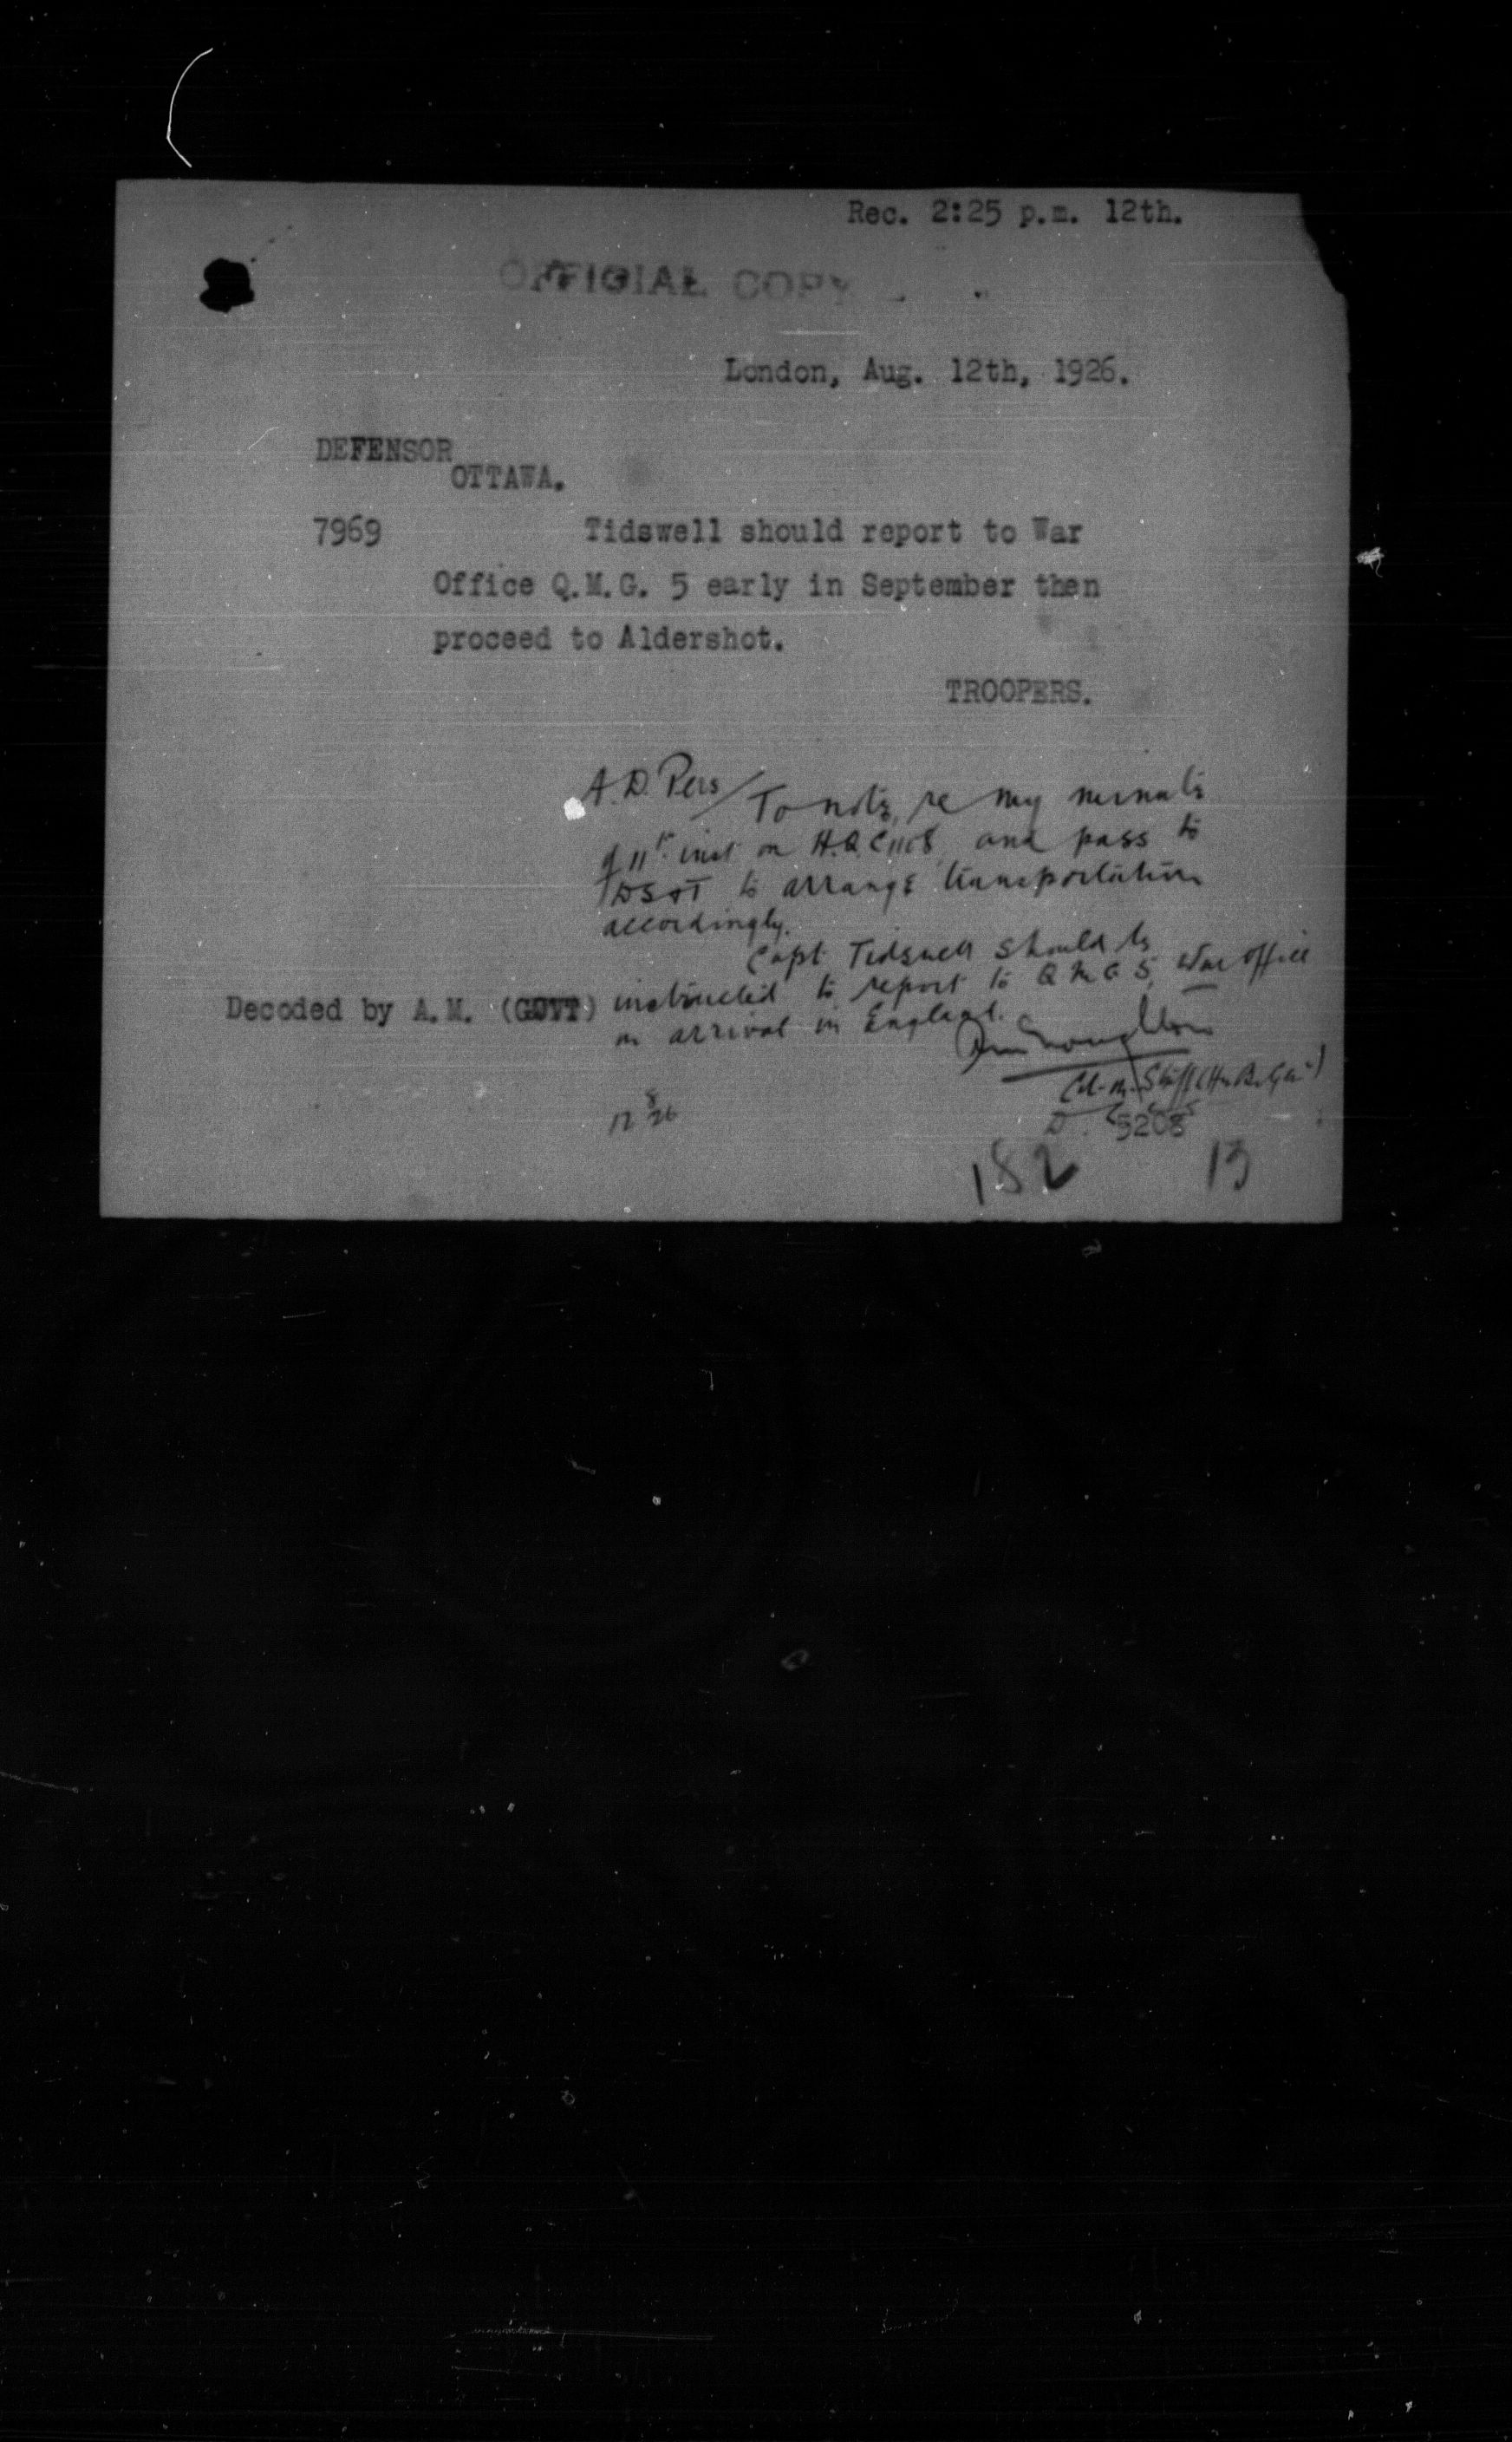 Rec. 2:25 p.m. 12th.
OFFICIAL COPY
London, Aug. 12th, 1926.
DEFENSOR
OTTAWA.
7969 Tidswell should report to War
Office Q.M.G. 5 early in September then
proceed to Aldershot.
TROOPERS.
A.D. Pers/ To note, re my minute
of 11th inst on H.Q.C. and pass to
DS&T to arrange transportation
accordingly.
Capt Tidswell should be
instructed to report to QMG 5, War Office
on arrival in England.
Decoded by A.M. (GOVT)
12 8/26
5208
182 13